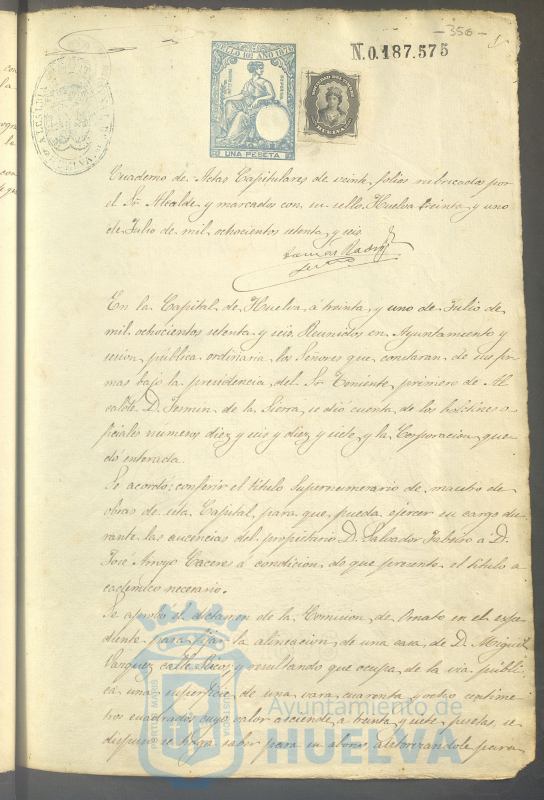 -356-
N.0.187.575
SELLO 11º AÑO 1876
UNA PESETA
Cuaderno de Actas Capitulares de veinte folios rubricados por
el Sr. Alcalde y marcados con su sello. Huelva treinta y uno
de Julio de mil ochocientos setenta y seis
En la Capital de Huelva, á treinta y uno de Julio de
mil ochocientos setenta y seis. Reunidos en Ayuntamiento y
sesion pública ordinaria los Señores que constaran de sus fir-
mas bajo la presidencia del Sr. Teniente primero de Al
calde D. Fermin de la Sierra, se dió cuenta de los boletines o-
ficiales números diez y seis y diez y siete, y la Corporacion que-
dó enterada.
Se acordó: conferir el título Supernumerario de maestro de
obras de esta Capital, para que pueda ejercer su cargo du-
rante las ausencias del propietario D. Salvador á D.
José Arroyo Caceres á condicion de que presente el título a
cadémico necesario.
Se aprobó el dictamen de la Comision de Ornato en el espe-
diente para fijar la alineacion de una casa de D. Miguel
Vazquez calle Ricos, y resultando que ocupa de la via públi-
ca una superficie de una vara cuarenta y ocho centíme-
tros cuadrados cuyo valor asciende á treinta y siete pesetas, se
dispuso se haga saber para su abono, autorizandole para
Ayuntamiento de
HUELVA